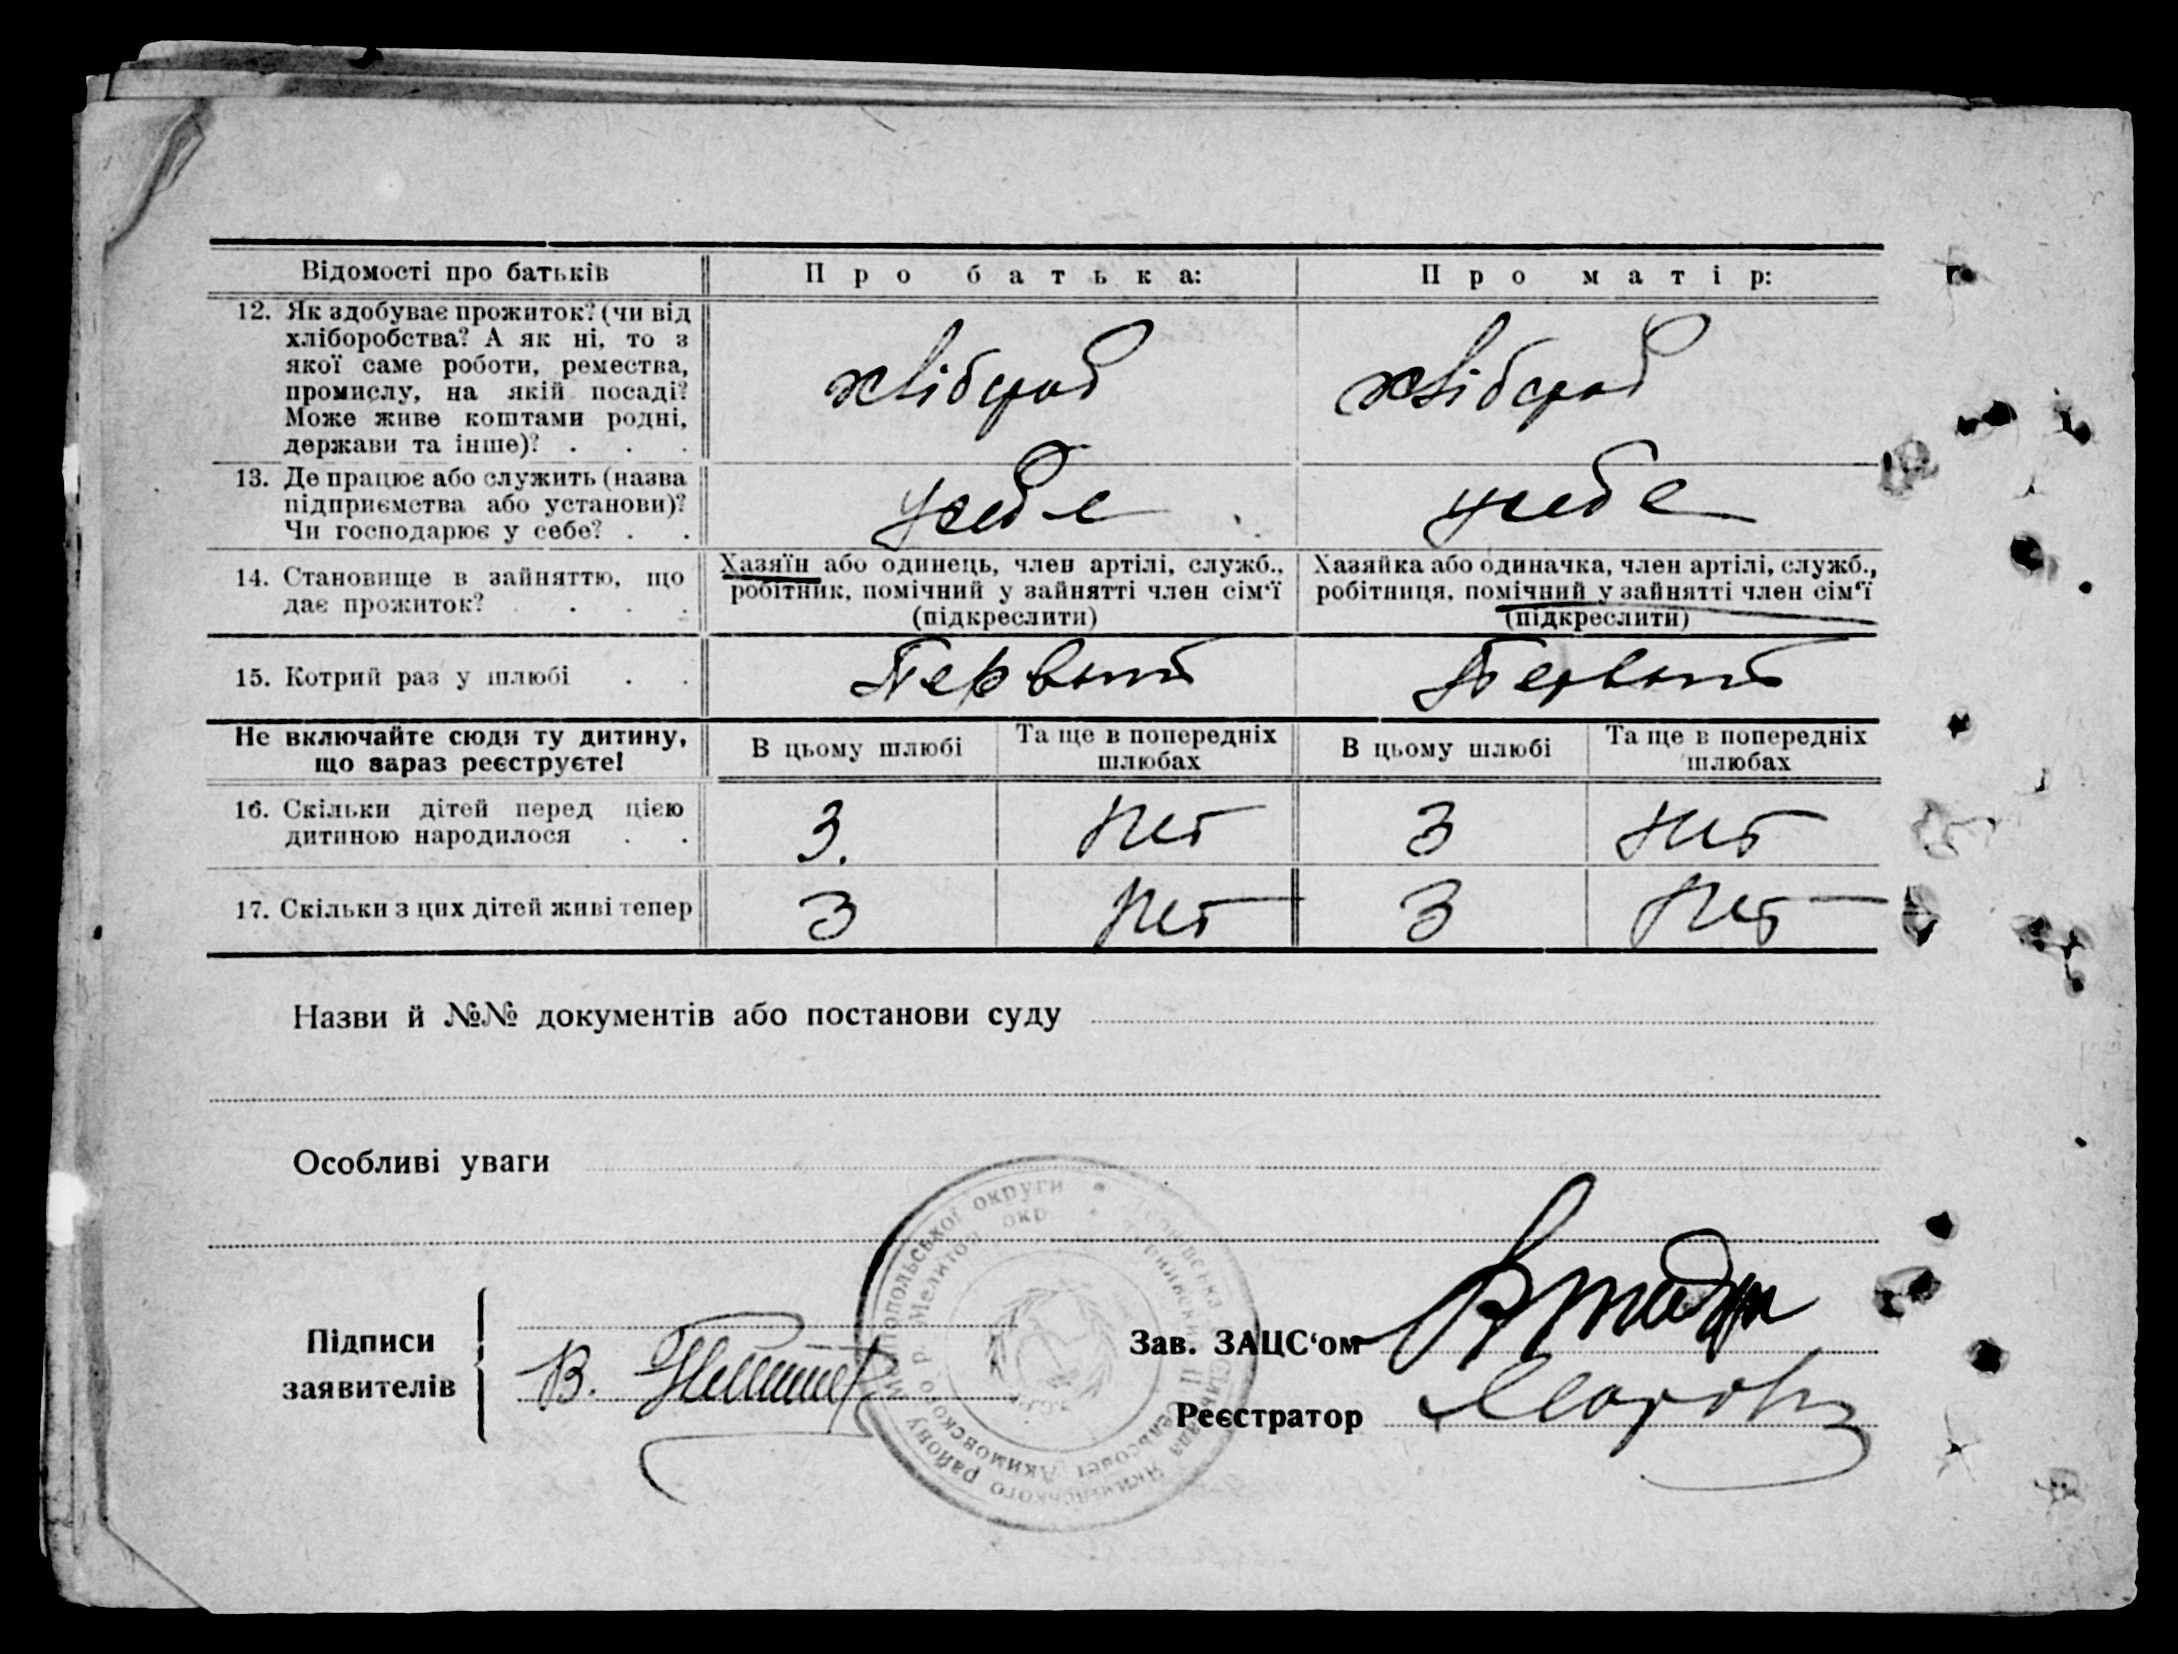 Відомості про батьків
Про батька:
Про матір:
12. Як здобуває прожиток? (чи від
хліборобства? А як ні, то з
якої саме роботи, ремества,
промислу, на якій посаді?
Може живе коштами родні,
держави та інше)? . . .
хлібороб
хлібороб
13. Де працює або служить (назва
підприємства або установи)?
Чи господарює у себе? . .
у себе
у себе
14. Становище в зайняттю, що
дає прожиток? . . . .
Хазяїн або одинець, член артілі, служб.,
робітник, помічний у зайнятті член сім'ї
(підкреслити)
Хазяйка або одиначка, член артілі, служб.,
робітниця, помічний у зайнятті член сім'ї
(підкреслити)
15. Котрий раз у шлюбі . .
Первый
Первый
Не включайте сюди ту дитину,
що зараз реєструєте!
В цьому шлюбі
Та ще в попередніх
шлюбах
В цьому шлюбі
Та ще в попередніх
шлюбах
16. Скільки дітей перед цією
дитиною народилося . .
3.
Нет
3
Нет
17. Скільки з цих дітей живі тепер
3
Нет
3
Нет
Назви й №№ документів або постанови суду
Особливі уваги
Підписи
заявителів
В.
Зав. ЗАЦС'ом
Реєстратор
Мелітопольської округи
Якимівського району
Мелитоп. окр.
Акимовского р.
Сельсовет